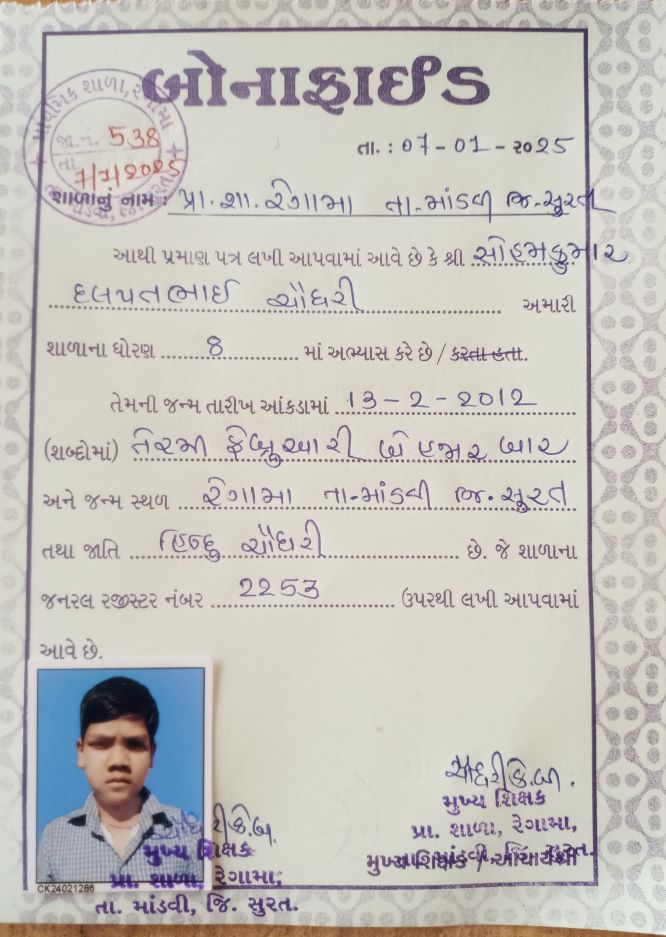 બોનાફાઈડ
પ્રાથમિક શાળા, રેગામા
જા.નં. 538
તા. 7/1/2025
તા. માંડવી, જિ. સુરત
તા. : 07-01-૨૦25
શાળાનું નામ : પ્રા.શા.રેગામા તા.માંડવી જિ.સુરત
આથી પ્રમાણ પત્ર લખી આપવામાં આવે છે કે શ્રી સોહમકુમાર
દલપતભાઈ ચૌધરી અમારી
શાળાના ધોરણ 8 માં અભ્યાસ કરે છે / કરતા હતા.
તેમની જન્મ તારીખ આંકડામાં 13-2-2012
(શબ્દોમાં) તેરમી ફેબ્રુઆરી બે હજાર બાર
અને જન્મ સ્થળ રેગામા તા-માંડવી જિ.સુરત
તથા જાતિ હિન્દુ ચૌધરી છે. જે શાળાના
જનરલ રજીસ્ટર નંબર 2253 ઉપરથી લખી આપવામાં
આવે છે.
ચૌધરી કે.બી.
મુખ્ય શિક્ષક
પ્રા. શાળા, રેગામા,
તા. માંડવી, જિ. સુરત.
મુખ્ય શિક્ષક / આચાર્યશ્રી
ચૌધરી કે.બી.
મુખ્ય શિક્ષક
CK24021286
પ્રા. શાળા, રેગામા,
તા. માંડવી, જિ. સુરત.